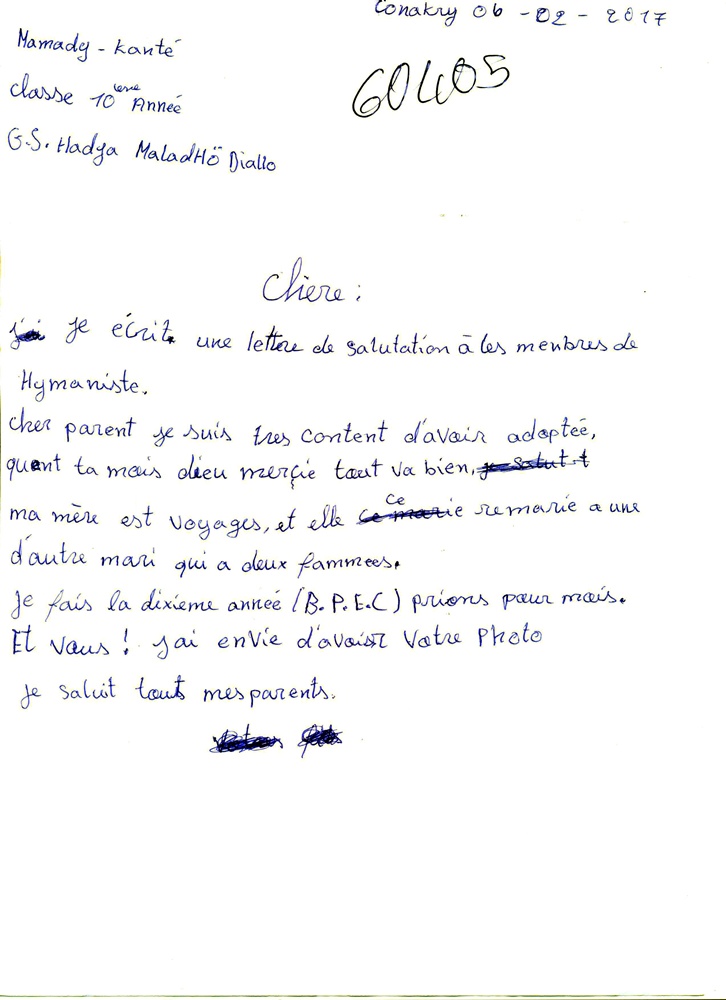 Conakry 06 - 02 - 2017
Mamady - Kanté
60405
classe 10ième Année
G.S. Hadja MaladHö Diallo
Chère :
Je écrit une lettre de salutation à les menbres de
Hymaniste.
cher parent je suis tres content d'avoir adoptée,
quant ta mais dieu merçie tout va bien,
ma mère est voyages, et elle ce remarie a une
d'autre mari qui a deux fammees.
Je fais la dixième année (B.P.E.C) prions pour mais.
Et vous ! j'ai envie d'avoir Votre Photo
je saluit touts mes parents.